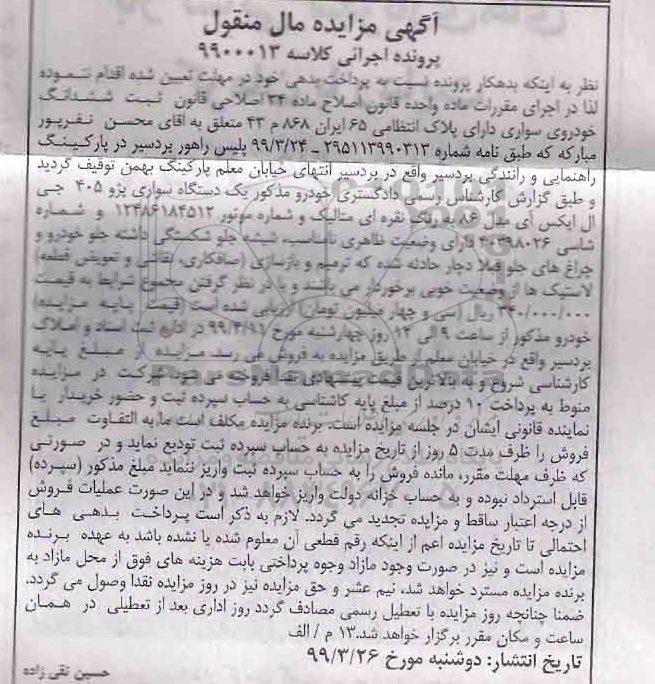 آگهی مزایده مال منقول
پرونده اجرائی کلاسه ۹۹۰۰۰۱۳
نظر به اینکه بدهکار پرونده نسبت به پرداخت بدهی خود در مهلت تعین شده اقدام ننموده
لذا در اجرای مقررات ماده واحده قانون اصلاح ماده ۳۴ اصلاحی قانون ثبت ششدانگ
خودروی سواری دارای پلاک انتظامی ۶۵ ایران ۸۶۸ م ۴۳ متعلق به آقای محسن نفرپور
مبارکه که طبق نامه شماره ۲۹۵۱۱۳۹۹۰۳۱۳ ـ ۹۹/۳/۲۴ پلیس راهور بردسیر در پارکینگ
راهنمایی و رانندگی بردسیر واقع در بردسیر انتهای خیابان معلم پارکینگ بهمن توقیف گردید
و طبق گزارش کارشناس رسمی دادگستری خودرو مذکور یک دستگاه سواری پژو ۴۰۵ جی
ال ایکس آی مدل ۸۶ به رنگ نقره ای متالیک و شماره موتور ۱۲۴۸۶۱۸۴۵۱۲ و شماره
شاسی ۴۰۳۹۸۰۲۶ دارای وضعیت ظاهری نامناسب، شیشه جلو شکستگی داشته جلو خودرو و
چراغ های جلو قبلا دچار حادثه شده که ترمیم و بازسازی (صافکاری، نقاشی و تعویض قطعه)
لاستیک ها از وضعیت خوبی برخوردار می باشند و با در نظر گرفتن مجموع شرایط به قیمت
۳۴۰/۰۰۰/۰۰۰ ریال (سی و چهار میلیون تومان) ارزیابی شده است (قیمت پایه مزایده)
خودرو مذکور از ساعت ۹ الی ۱۲ روز چهارشنبه مورخ ۹۹/۴/۱۱ در اداره ثبت اسناد و املاک
بردسیر واقع در خیابان معلم از طریق مزایده به فروش می رسد. مزایده از مبلغ پایه
کارشناسی شروع و به بالاترین قیمت پیشنهادی نقدا فروخته می شود. شرکت در مزایده
منوط به پرداخت ۱۰ درصد از مبلغ پایه کاشناسی به حساب سپرده ثبت و حضور خریدار یا
نماینده قانونی ایشان در جلسه مزایده است. برنده مزایده مکلف است ما به التفاوت مبلغ
فروش را ظرف مدت ۵ روز از تاریخ مزایده به حساب سپرده ثبت تودیع نماید و در صورتی
که ظرف مهلت مقرر، مانده فروش را به حساب سپرده ثبت واریز ننماید مبلغ مذکور (سپرده)
قابل استرداد نبوده و به حساب خزانه دولت واریز خواهد شد و در این صورت عملیات فروش
از درجه اعتبار ساقط و مزایده تجدید می گردد. لازم به ذکر است پرداخت بدهی های
احتمالی تا تاریخ مزایده اعم از اینکه رقم قطعی آن معلوم شده یا نشده باشد به عهده برنده
مزایده است و نیز در صورت وجود مازاد وجوه پرداختی بابت هزینه های فوق از محل مازاد به
برنده مزایده مسترد خواهد شد، نیم عشر و حق مزایده نیز در روز مزایده نقدا وصول می گردد.
ضمنا چنانچه روز مزایده با تعطیل رسمی مصادف گردد روز اداری بعد از تعطیلی در همان
ساعت و مکان مقرر برگزار خواهد شد.۱۳ م / الف
تاریخ انتشار: دوشنبه مورخ ۹۹/۳/۲۶
حسین تقی زاده